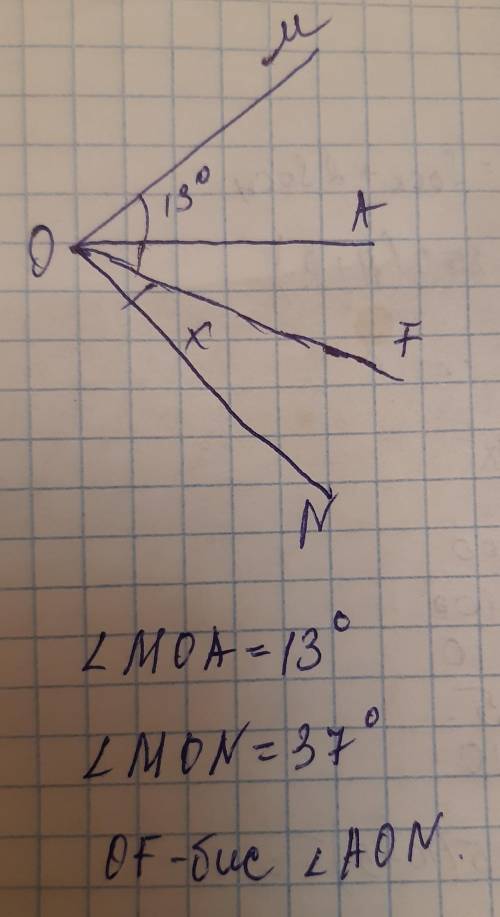 M
13°
A
O
F
x
N
∠MOA = 13°
∠MON = 37°
OF - бис ∠AON.